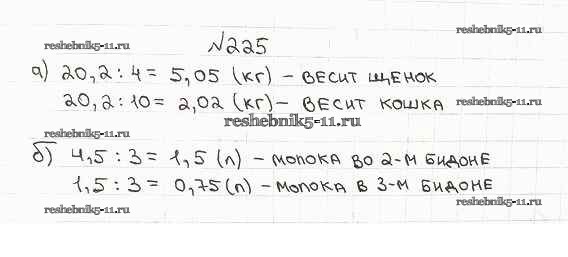 reshebnik5-11.ru
№225
reshebnik5-11.ru
а) 20,2 : 4 = 5,05 (кг) – весит щенок
20,2 : 10 = 2,02 (кг) – весит кошка
reshebnik5-11.ru
reshebnik5-11.ru
reshebnik5-11.ru
б) 4,5 : 3 = 1,5 (л) – молока во 2-м бидоне
1,5 : 3 = 0,75 (л) – молока в 3-м бидоне
reshebnik5-11.ru
reshebnik5-11.ru